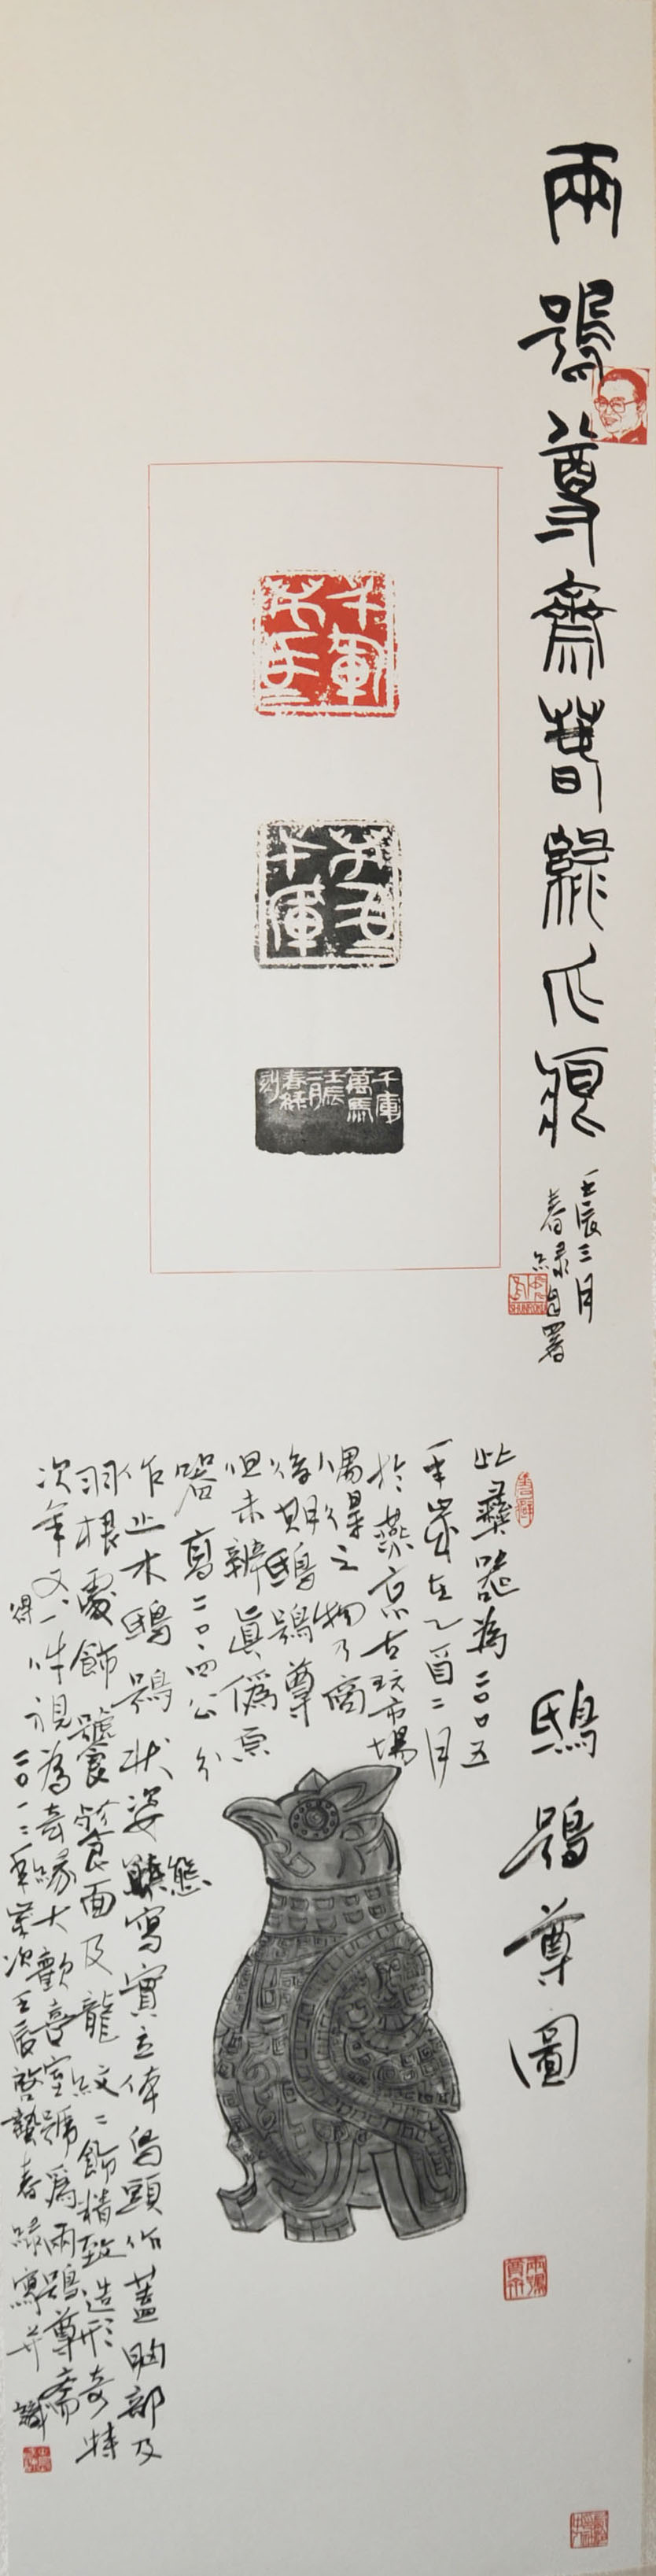 兩鴞尊齋春綠爪痕
壬辰三月
春綠自署
千軍
萬馬
壬辰
二月
春綠
刻
鴟鴞尊圖
此彝器為二〇〇五
年歲在乙酉二月
於燕京古玩市場
偶得之物乃商
後期鴟鴞尊
但未辨真偽原
器高二〇.四公分
作止水鴟鴞狀姿態
寫實立体鳥頭作蓋胸部及
羽根處飾饕餮面及龍紋紋飾精致造形奇特
次年又得一件視為奇緣大歡喜室號爲兩鴞尊齋
二〇一二年歲次壬辰啓蟄春綠寫并識